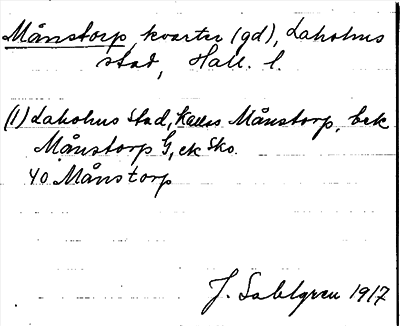 Månstorp, kvarter (gd), Laholms
stad, Hall. l.
(1) Laholms stad, kallas Månstorp, bek
Månstorp G, ek Sko.
40 Månstorp
J. Sahlgren 1917